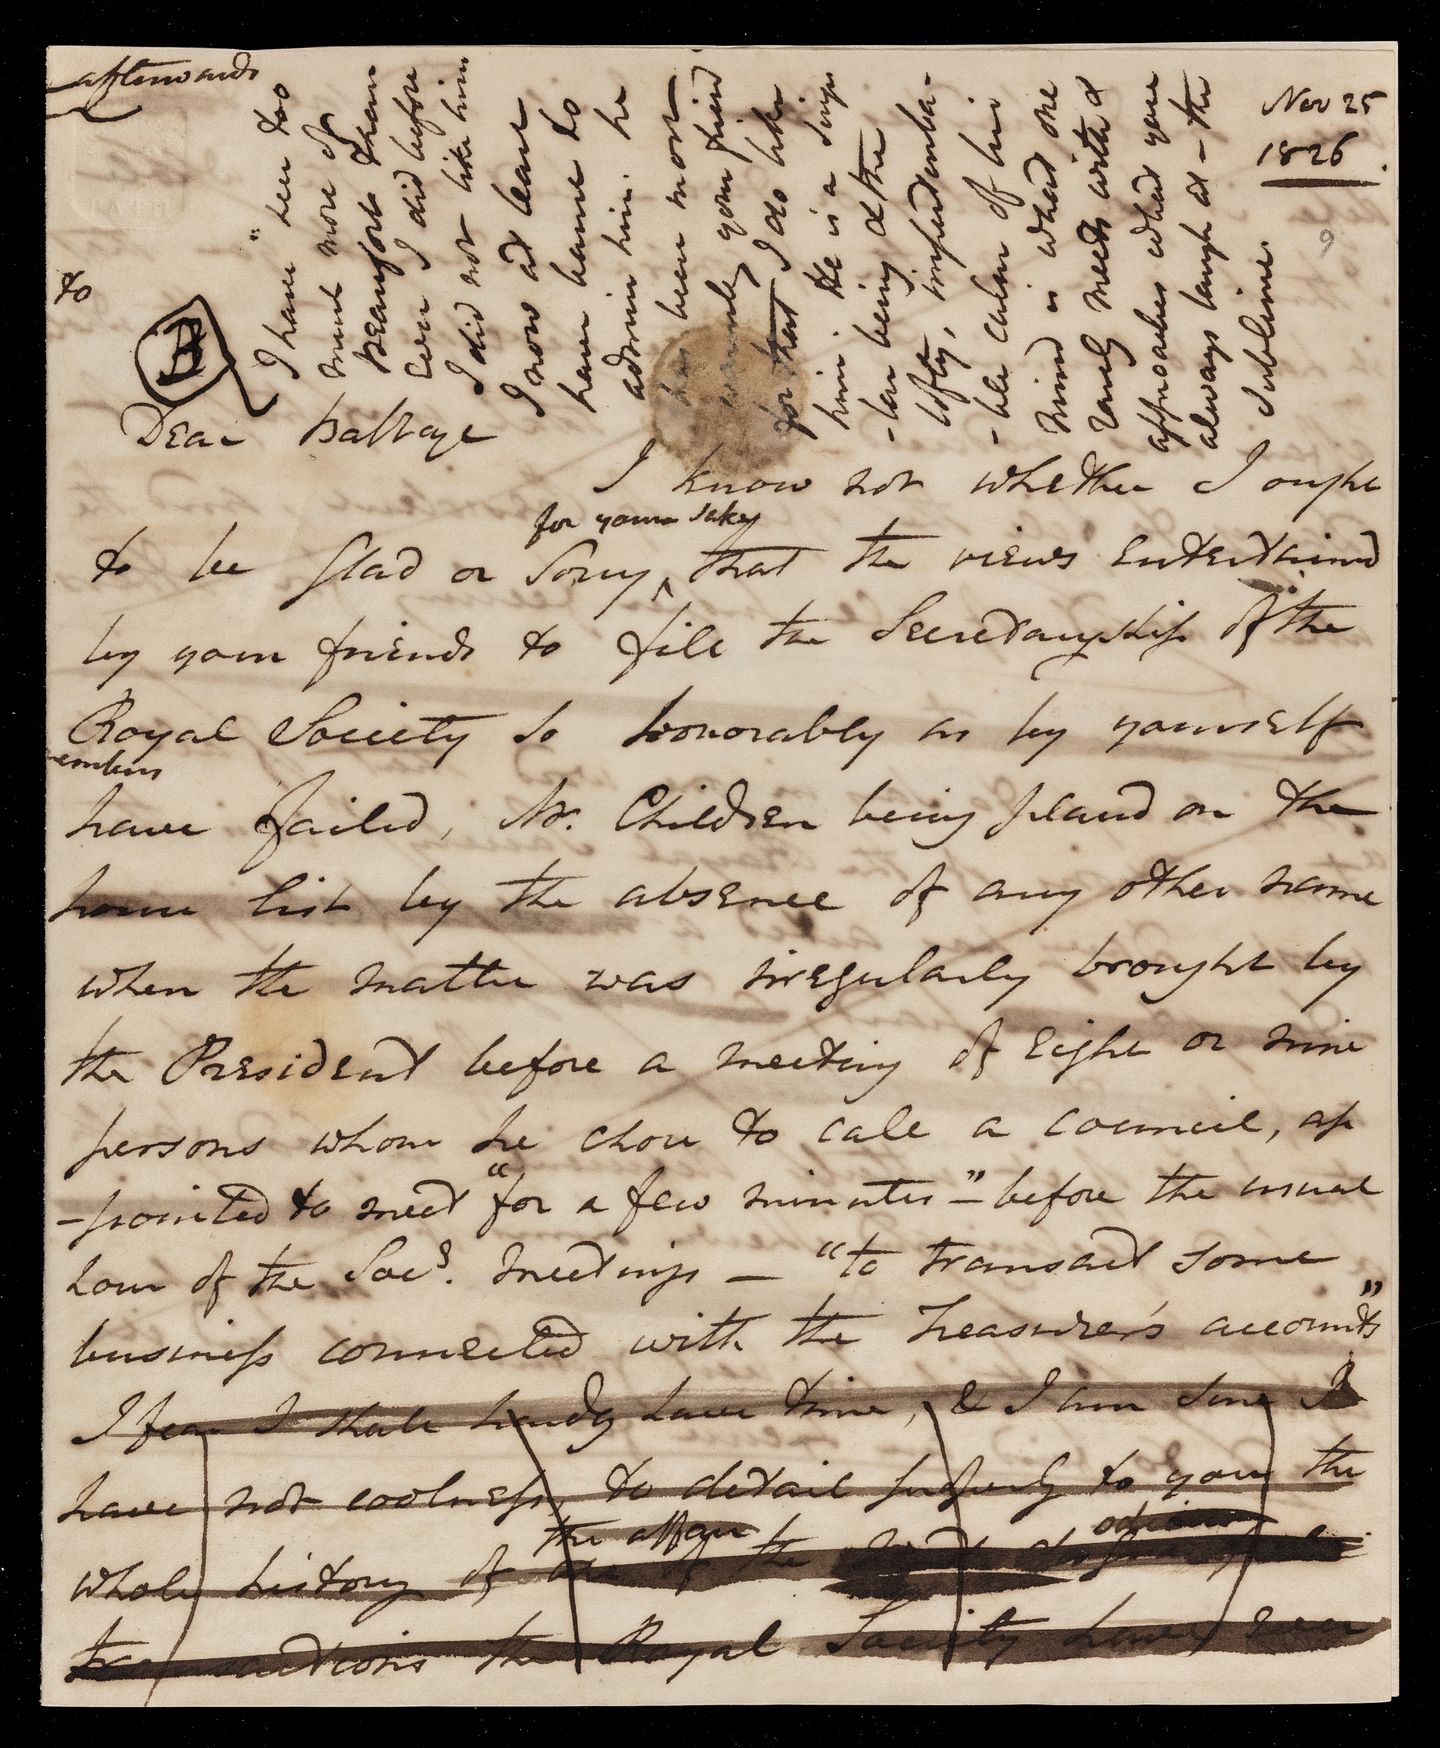 afterwards
Nov 25
1826
9
to
B
I have "seen too
much more of
Beaufort than
Ever I did before
I did not like him
I now at least
have learnt to
admire him. he
has been most
warmly your friend
for that I do like
him. He is a singu
-lar being & the
lofty, imperturba-
-ble calm of his
mind is what one
rarely meets with &
approaches what you
always laugh at - the
sublime
Dear Babbage
I know not whether I ought
for your sake
to be glad or sorry, that the views entertained
by your friends to fill the Secretaryship of the
Royal Society so honorably as by yourself
have failed, Mr. Children being placed on the
house list by the absence of any other name
when the matter was irregularly brought by
the President before a meeting of eight or nine
persons whom he chose to call a council, ap
-pointed to meet "for a few minutes" - before the usual
hour of the Socy. meetings - "to transact some
business connected with the Treasurer's accounts"
I fear I shall hardly have time, & I am sure I
have not coolness, to detail properly to you the
the affair odious
whole history of one of the most disgraceful
transactions the Royal Society have ever